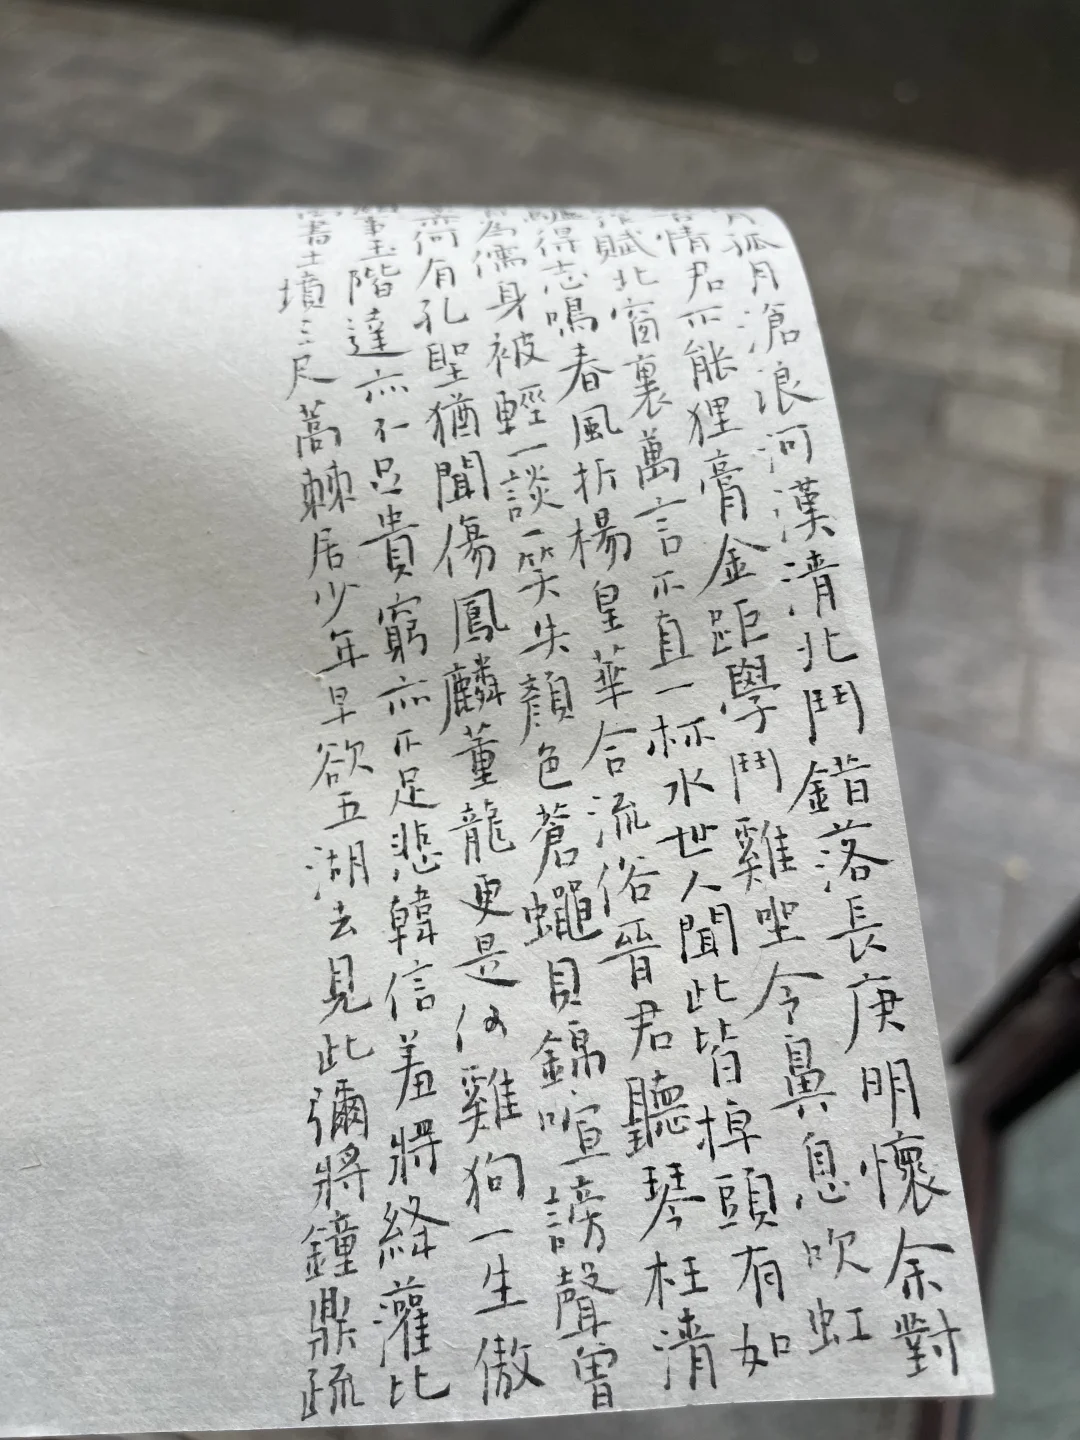 孤月滄浪河漢清北鬥錯落長庚明懷余對
情君不能狸膏金距學鬥雞坐令鼻息吹虹
賦北窗裏萬言不直一杯水世人聞此皆掉頭有如
得志鳴春風折楊皇華合流俗晉君聽琴枉清
為儒身被輕一談一笑失顏色蒼蠅貝錦喧謗聲曾
何有孔聖猶聞傷鳳麟董龍更是何雞狗一生傲
玉階達亦不足貴窮亦不足悲韓信羞將絳灌比
書土墳三尺蒿棘居少年早欲五湖去見此彌將鐘鼎疏